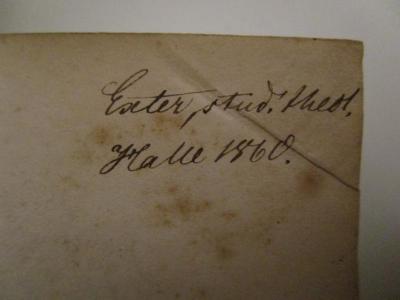 Exter, stud. theol.
Halle 1860.